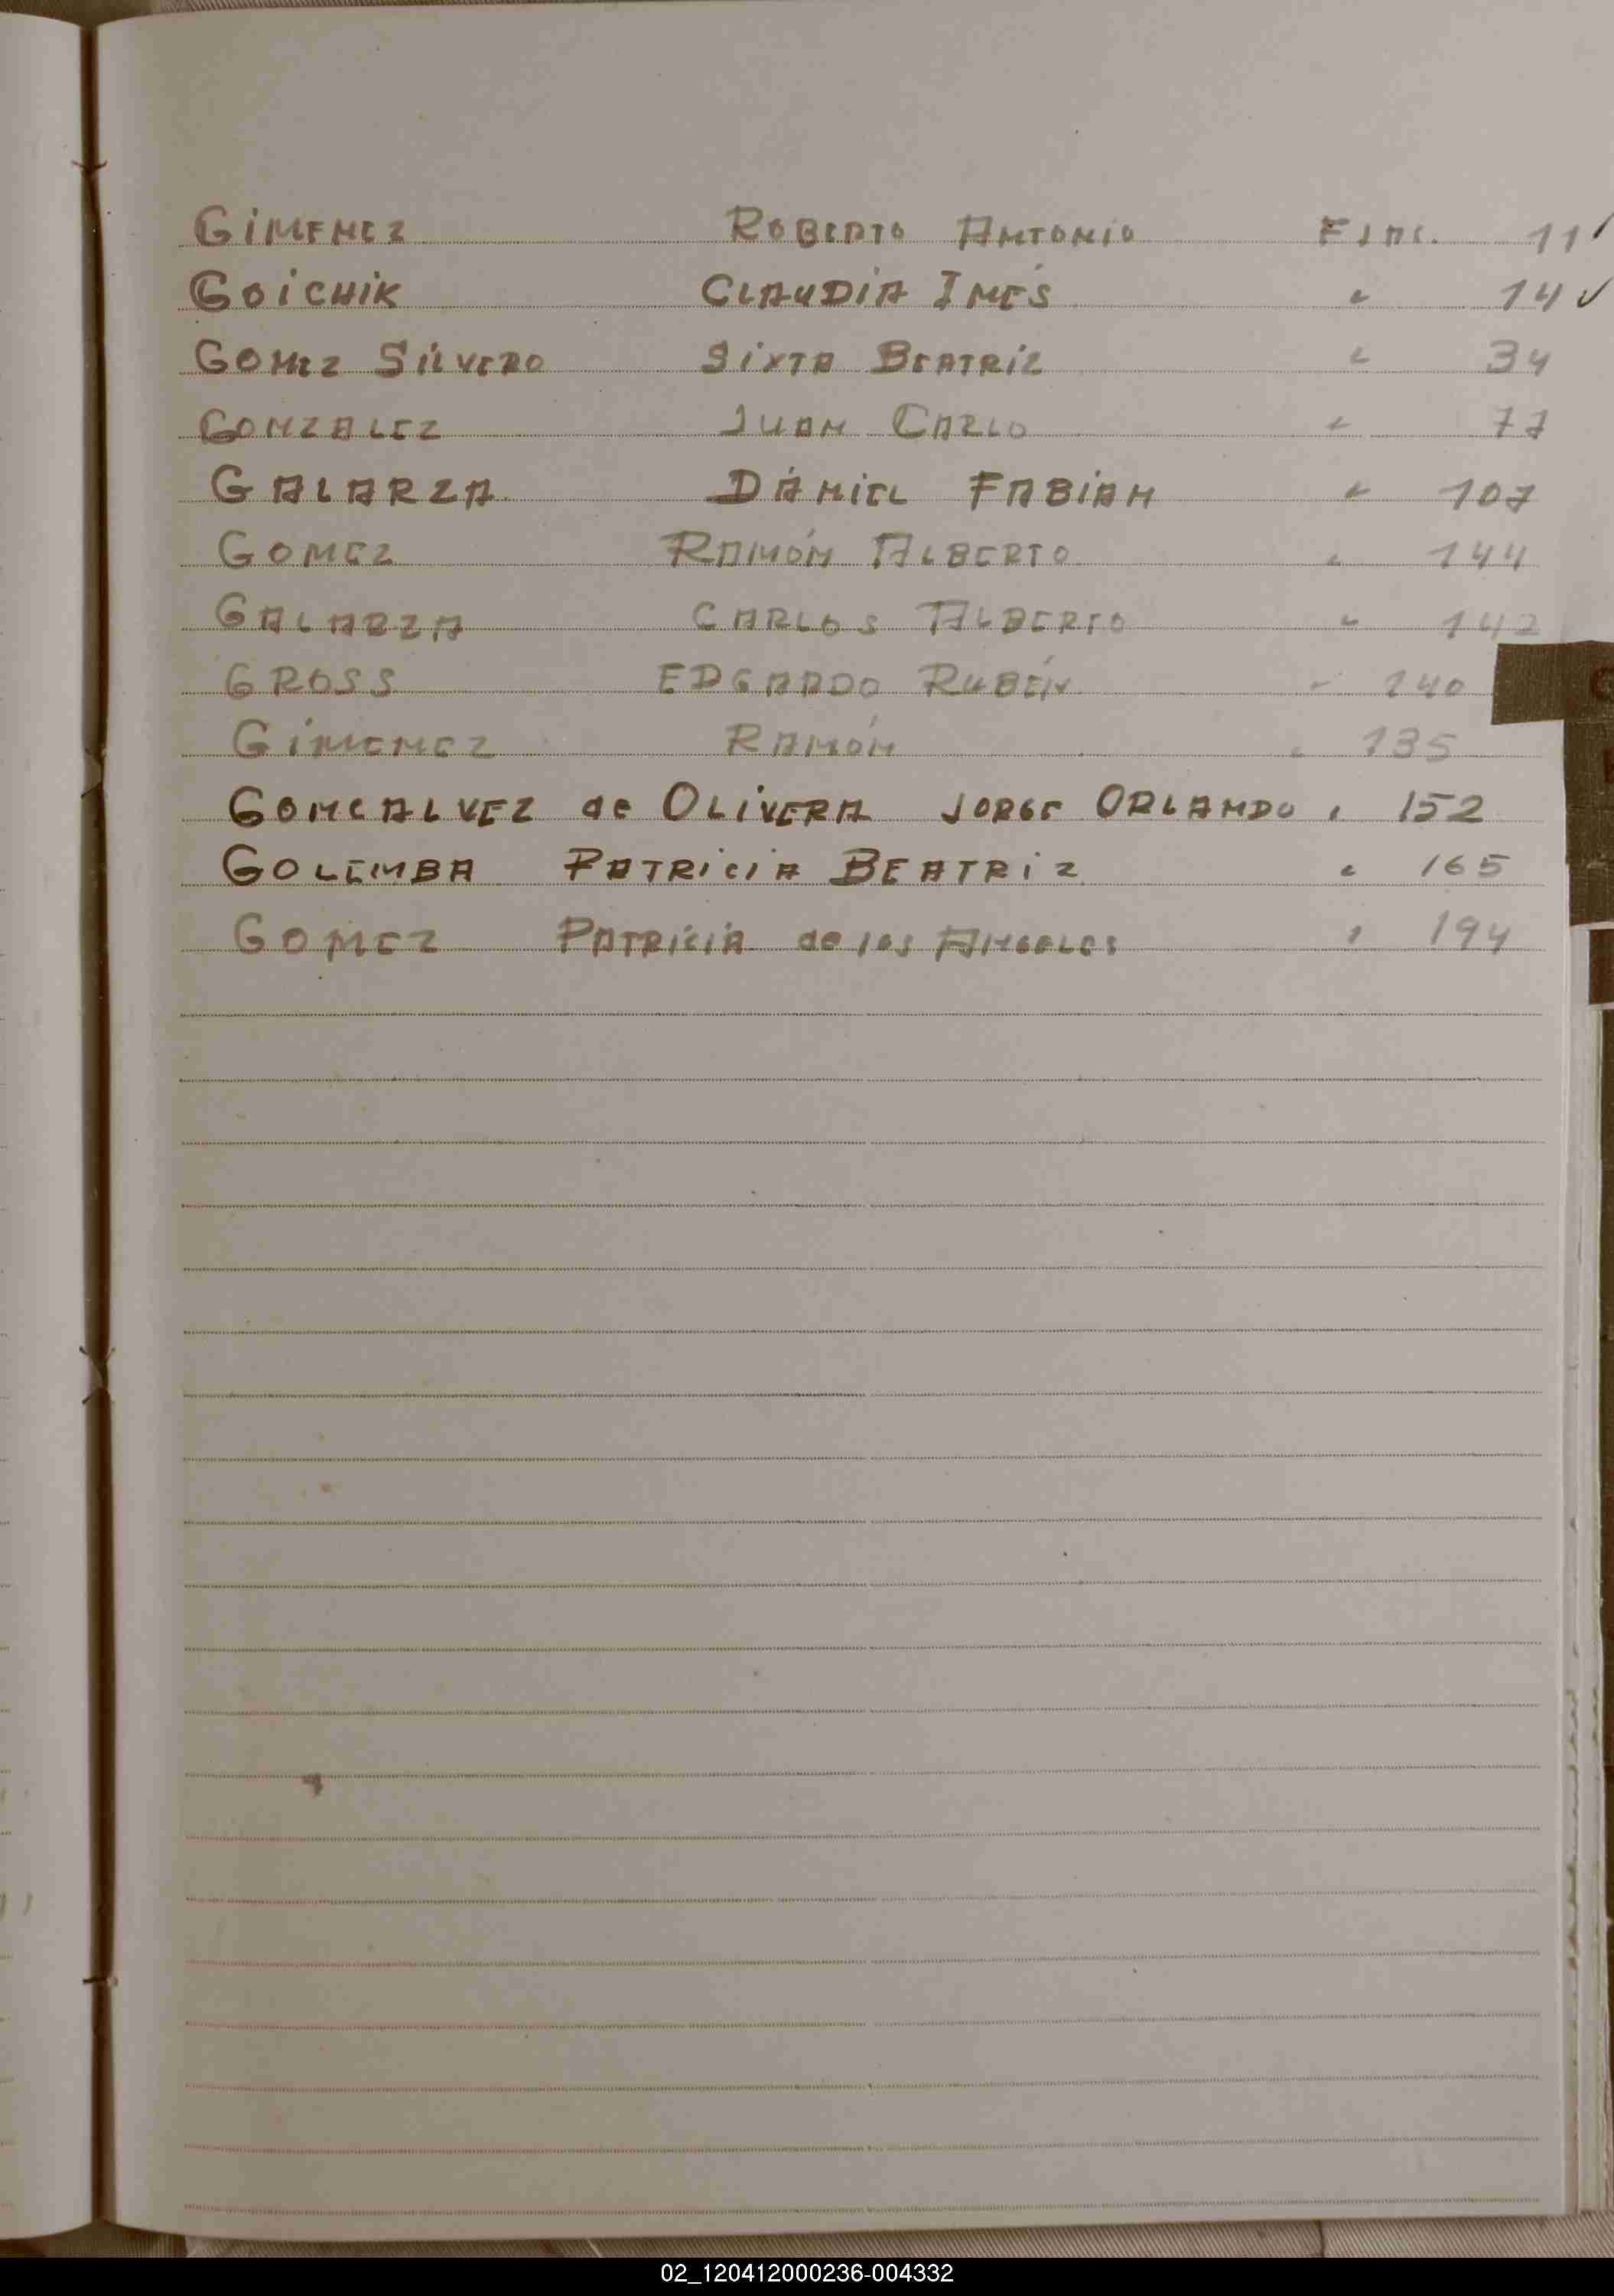 GIMENEZ ROBERTO ANTONIO 11 ✓
GOICHIK CLAUDIA INÉS " 14 ✓
GOMEZ SILVERO SIXTA BEATRIZ " 34
GONZALEZ JUAN CARLO " 77
GALARZA DANIEL FABIAN " 107
GOMEZ RAMÓN ALBERTO " 144
GALARZA CARLOS ALBERTO " 142
GROSS EDGARDO RUBÉN " 140
GIMENEZ RAMÓN " 135
GONCALVEZ de OLIVERA JORGE ORLANDO " 152
GOLEMBA PATRICIA BEATRIZ " 165
GOMEZ PATRICIA de los ANGELES " 194
02_120412000236-004332